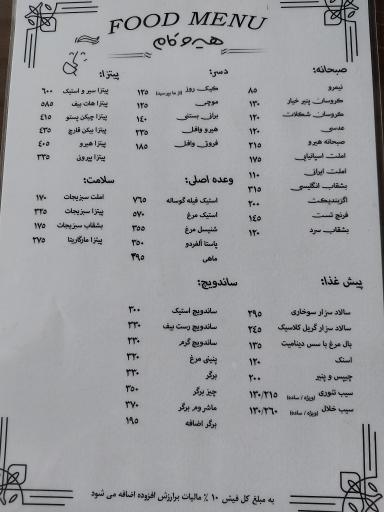 FOOD MENU
هیروکام
صبحانه:
نیمرو ۸۵
کروسان پنیر خیار ۱۳۰
کروسان شکلات ۱۲۰
عدسی ۱۲۰
صبحانه هیرو ۲۱۵
املت اسپانیایی ۱۷۵
املت ایرانی ۱۱۰
بشقاب انگلیسی ۳۱۵
اگزبندیکت ۲۰۰
فرنچ تست ۱۴۵
بشقاب سرد ۱۲۰
دسر:
کیک روز (از ما بپرسید) ۱۲۵
موچی ۱۲۵
براونی بستنی ۱۴۰
هیرو وافل ۲۳۵
فروتی وافل ۱۸۵
پیتزا:
پیتزا سیر و استیک ۶۰۰
پیتزا هات بیف ۵۸۵
پیتزا چیکن پستو ۴۱۵
پیتزا بیکن قارچ ۴۳۵
پیتزا هیرو ۴۰۵
پیتزا پپرونی ۳۳۵
وعده اصلی:
استیک فیله گوساله ۷۶۵
استیک مرغ ۵۷۰
شنیسل مرغ ۳۵۵
پاستا آلفردو ۳۵۰
ماهی ۴۹۵
سلامت:
املت سبزیجات ۱۷۰
پیتزا سبزیجات ۳۲۵
بشقاب سبزیجات ۱۷۵
پیتزا مارگاریتا ۲۷۵
پیش غذا:
سالاد سزار سوخاری ۲۹۵
سالاد سزار گریل کلاسیک ۲۴۵
بال مرغ با سس دینامیت ۱۳۵
اسنک ۱۲۰
چیپس و پنیر ۲۰۰
سیب تنوری (ویژه / ساده) ۱۳۰/۲۱۵
سیب خلال (ویژه / ساده) ۱۳۰/۲۶۰
ساندویچ:
ساندویچ استیک ۳۰۰
ساندویچ رست بیف ۳۳۰
ساندویچ گرم ۲۳۰
پنینی مرغ ۳۲۰
برگر ۳۲۰
چیز برگر ۳۵۰
ماشروم برگر ۳۷۰
برگر اضافه ۱۹۵
به مبلغ کل فیش ۱۰ ٪ مالیات برارزش افزوده اضافه می شود